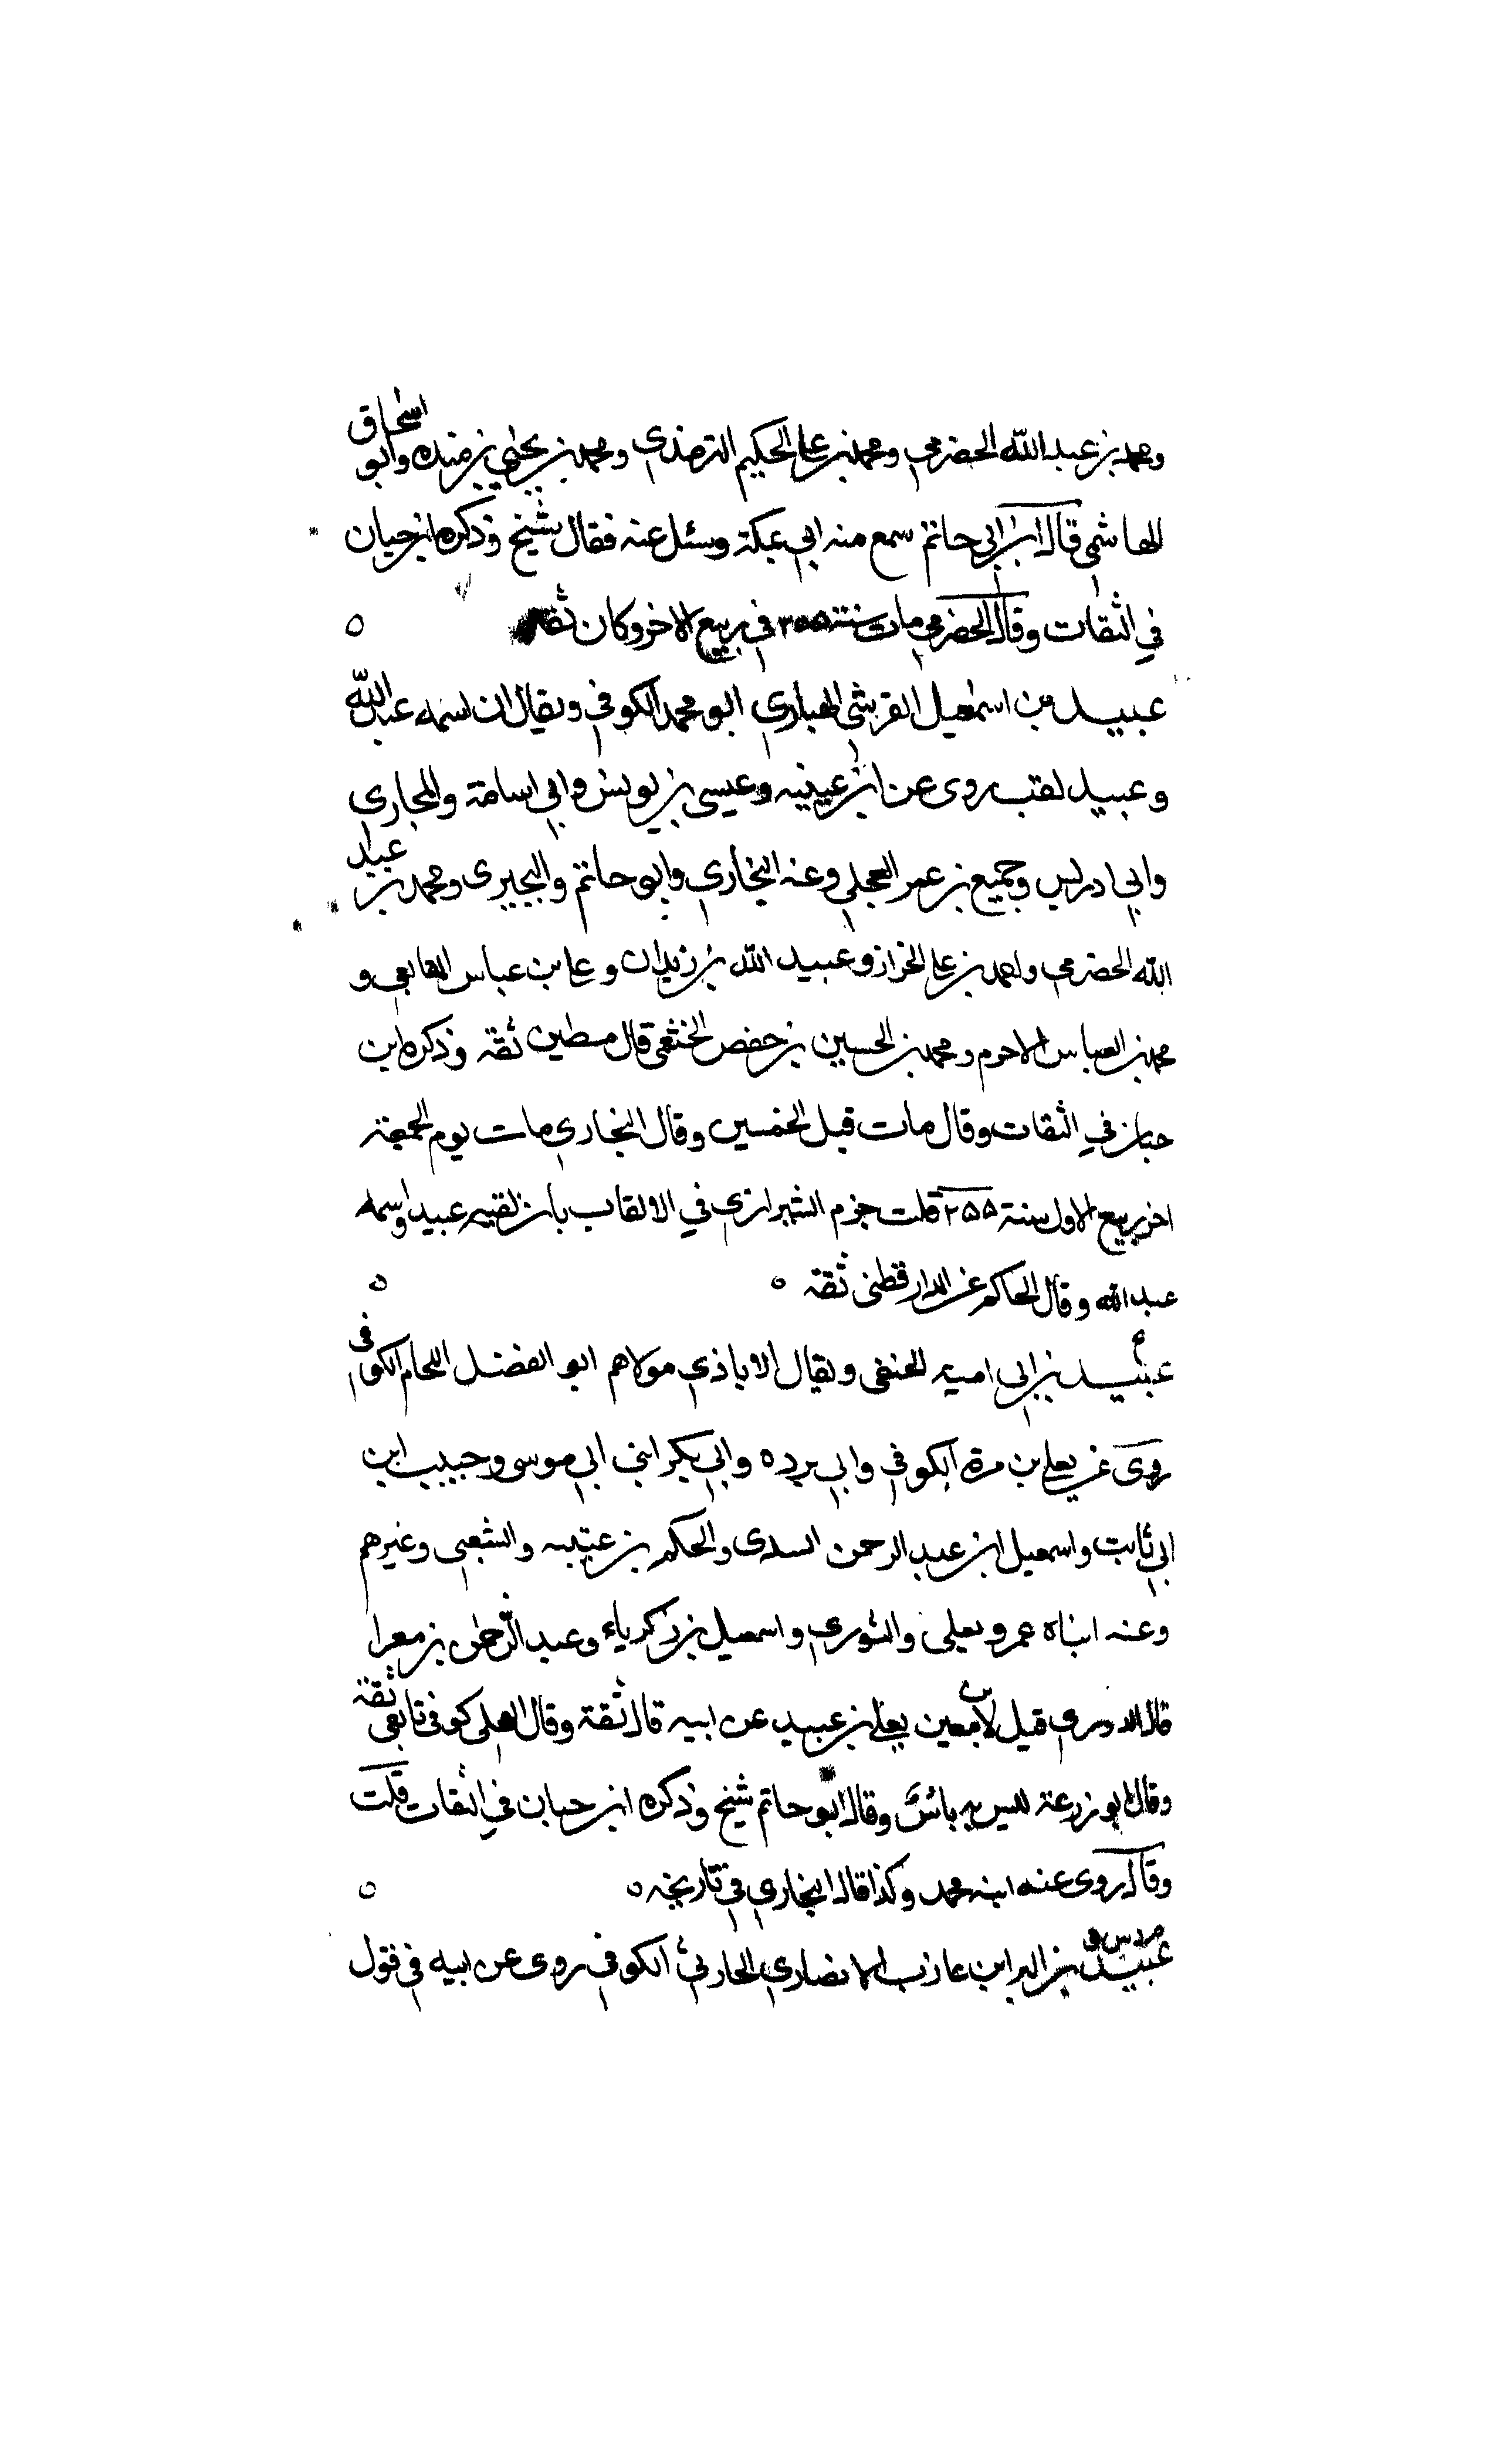 ومحمد بن عبد الله الحضرمي ومحمد بن علي الحكيم الترمذي ومحمد بن يحيى بن منده وابو اسحاق
الهاشمي قال ابن ابي حاتم سمع منه ابي بمكة وسئل عنه فقال شيخ وذكره ابن حبان
في الثقات وقال الحضرمي مات سنة ٢٥٥ في ربيع الاخر وكان ثقة ٥
عبيد بن اسمعيل القرشي الهباري ابو محمد الكوفي ويقال ان اسمه عبد الله
وعبيد لقب روى عن ابن عيينه وعيسى بن يونس وابي اسامة والمحاربي
وابي ادريس وجميع بن عمر العجلي وعنه البخاري وابو حاتم والبجيرى ومحمد بن عبد
الله الحضرمي واحمد بن علي الخزاز وعبيد الله بن زيدان وعلي بن عباس المقانعي و
محمد بن العباس الاخرم ومحمد بن الحسين بن حفص الخثعمي قال مطين ثقة وذكره ابن
حبان في الثقات وقال مات قبل الخمسين وقال البخاري مات يوم الجمعة
اخر ربيع الاول سنة ٢٥٥ قلت جزم الشيرازي في الالقاب بان لقبه عبيد واسمه
عبد الله وقال الحاكم عن الدارقطني ثقة ٥ ٥
عبيد بن ابي اميه الحنفي ويقال الاياذي مولاهم ابو الفضل اللحام الكوفي
روى عن يعلى بن مرة الكوفي وابي برده وابي بكر ابني ابي موسى وحبيب ابن
ابي ثابت واسمعيل ابن عبد الرحمن السدى والحكم بن عتيبه والشعبي وغيرهم
وعنه ابناه عمر ويعلى والثوري واسمعيل بن زكرياء وعبد الرحمن بن مغرا
قال الدوري قيل لابن معين يعلى بن عبيد عن ابيه قال ثقة وقال العجلي كوفي تابعي ثقة
وقال ابو زرعة ليس به بأس وقال ابو حاتم شيخ وذكره ابن حبان في الثقات قلت
وقال روى عنه ابنه محمد وكذا قال البخاري في تاريخه ٥ ٥
عبيد بن البرا ابن عازب الانصاري الحارثي الكوفي روى عن ابيه في قول